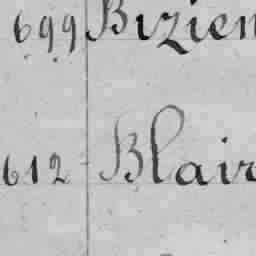 699 Bizien
612 Blair